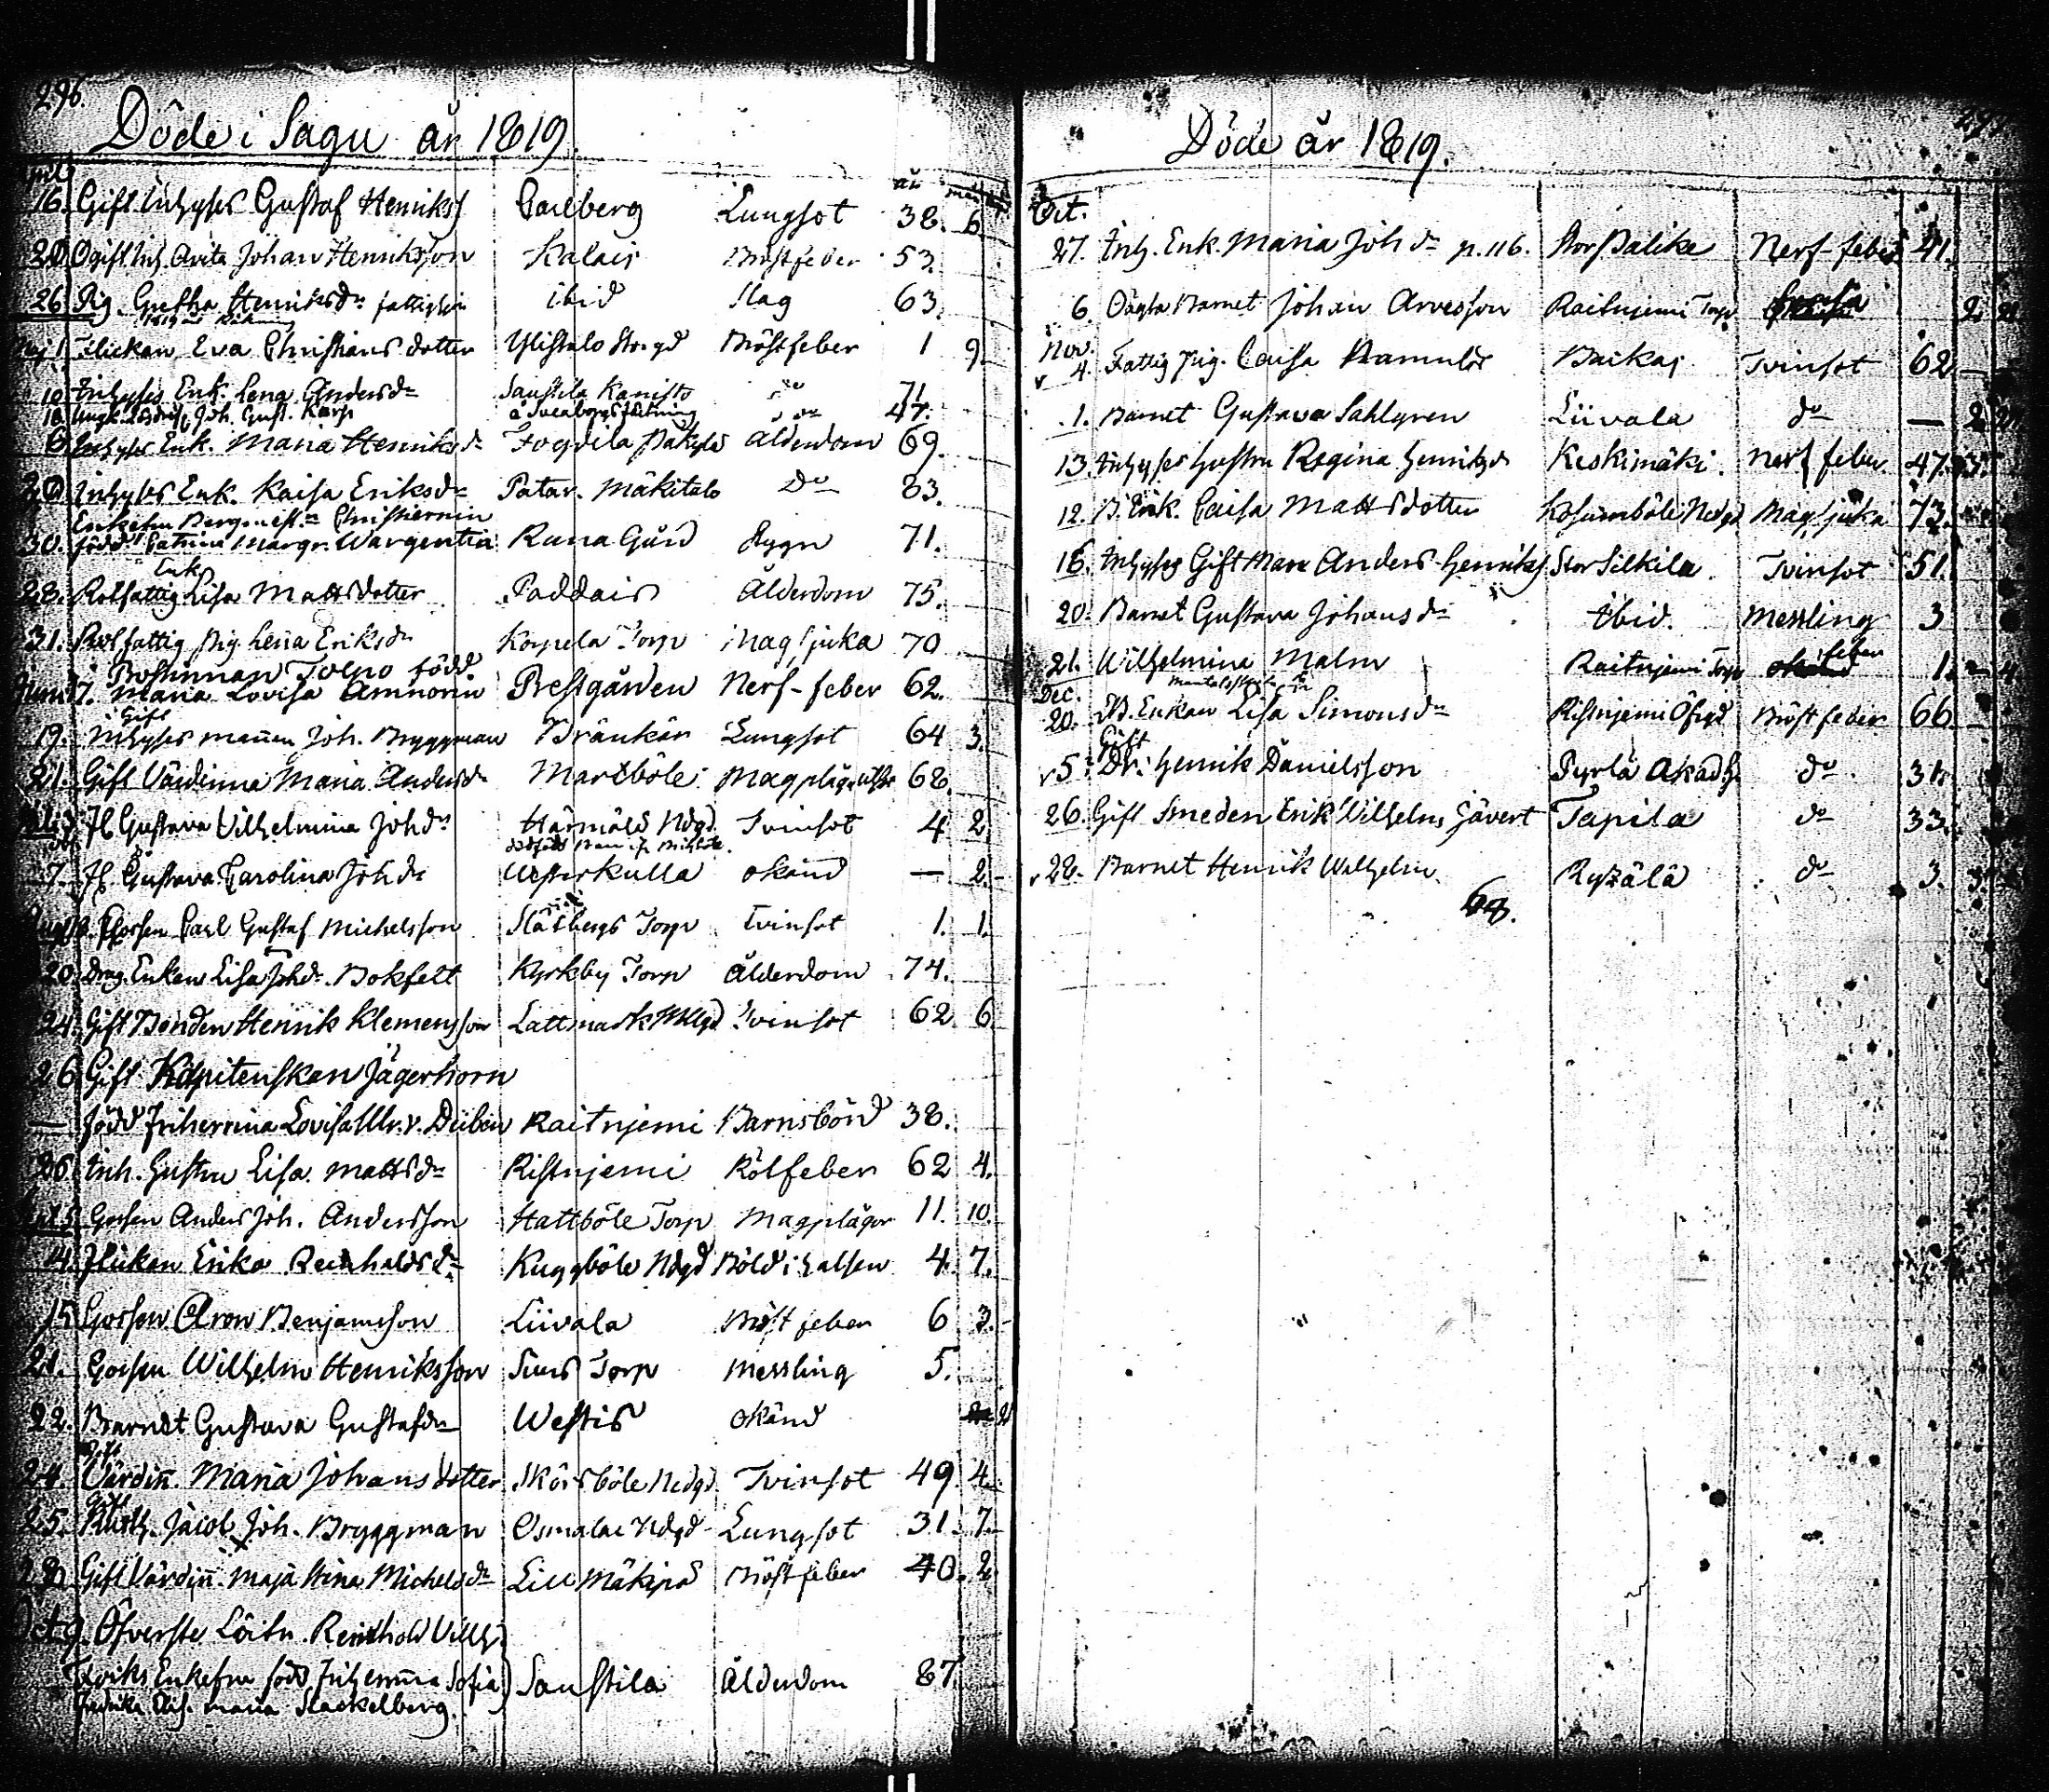 296.
Döde i Sagu år 1819.
år
16. Gift Inhyses Gustaf Henrikss Carlberg Lungsot 38. 6
20 Ogift Inh. Arvita Johan Henriksson Kalais Bröstfeber 53.
26 Pig. Gretha Henriksdr fattighion ibid Slag 63.
Maj 1. Flickan Eva Christians dotter Ylistalo Storgd Bröstfeber 1 9.
10 Inhyses Enk. Lena Andersdr Saustila Kanisto do 71
18 Joh. Gust. Karp å Sveaborgs fästning do 47.
6 Inhyses Enk. Maria Henriksdr Fogdila Backstu Ålderdom 69.
20 Inhyses Enk. Kaisa Eriksdr Patar. Mäkitalo Do 83.
Enkefru Bergmest. Christiernin
30. född Catrina Margr. Wargentin Runa Gård Rygn 71.
Enk
28. Rotfattig Lisa Mattsdotter Paddais Ålderdom 75.
31. Rotfattig Pig. Lena Eriksdr Korpela Torp Magsjuka 70
Prostinnan Tolpo född
Juni 17. Maria Lovisa Amnorin Prestgården Nerf-feber 62.
Gift
19. Inhyses mannen Joh. Bryggman Bränkärr Lungsot 64 3.
21. Gift Värdinna Maria Andersdr Martböle Magplågor 68.
Fl Gustava Vilhelmina Johdr Härmälä Ndgd Tvinsot 4 2
7. Fl. Gustava Carolina Johdr Westerkulla okänd — 2.
Gossen Carl Gustaf Michelsson Slätbergs Torp Tvinsot 1. 1.
20. Drag. Enkan Lisa Johdr Bokfelt Kyrkby Torp Ålderdom 74.
24. Gift Bonden Henrik Klemensson Lattmark Mklgd Tvinsot 62 6
26 Gift Kapitenskan Jägerhorn
— född Friherrinna Lovisa Ulr. v. Düben Raitnjemi Barnsbörd 38.
26 Inh. Hustru Lisa Mattsdr Ristnjemi Rötfeber 62 4.
Gossen Anders Joh. Andersson Hattböle Torp Magplågor 11. 10.
4. Flickan Erika Reinholdsdr Kuggböle Ndgd Böld i halsen 4. 7.
15 Gossen Aron Benjamsson Liivala Bröstfeber 6 3.
21. Gossen Wilhelm Henriksson Suus Torp Messling 5.
22. Barnet Gustava Gustafsdr Westis okänd
Gift
24. Värdin. Maria Johansdotter Skörsböle Nedgd. Tvinsot 49 4.
Gift
25. Rusth. Jacob Joh. Bryggman Osmalax Ndgd Lungsot 31. 7.
28 Gift Värdin. Maja Stina Michelsdr Lill Mäkipä Bröstfeber 40. 2
Oct 9. Öfverste Löitn. Reinhold Wilh.
Enkefru född Friherrinna Sofia Saustila Ålderdom 87.
Fredrika Maria Stackelberg.
Döde år 1819.
Oct.
27. Inh. Enk. Maria Johdr p. 116. Stor Palike Nerf-feber 41.
6. Oägta Barnet Johan Arvesson Raitnjemi Torp 2
Nov.
4. Fattig Pig. Caisa Baikaj Tvinsot 62 —
1. Barnet Gustava Sahlgren Liivala do — 2
13. Inhyses hustru Regina Henriksdr Keskimäki. Nerf feber 47.
12. B. Enk. Caisa Mattsdotter Kosumböle Nedgd Magsjuka 73.
16. Inhyses Gift Mann Anders Henrikss Stor Silkila Tvinsot 51.
20. Barnet Gustava Johansdr ibid. Messling 3
21. Wilhelmina Malm Raitnjemi Torp feber 1. 4.
Dec.
20. Enkan Lisa Simonsdr Ristnjemi Öfrgd Bröstfeber 66
Gift
5. Dr. Henrik Danielsson Pyrlä do 31.
26. Gift Smeden Erik Wilhelm Gävert Tapila do 33.
28. Barnet Henrik Wilhelm. Ryzälä do 3. 3.
68.